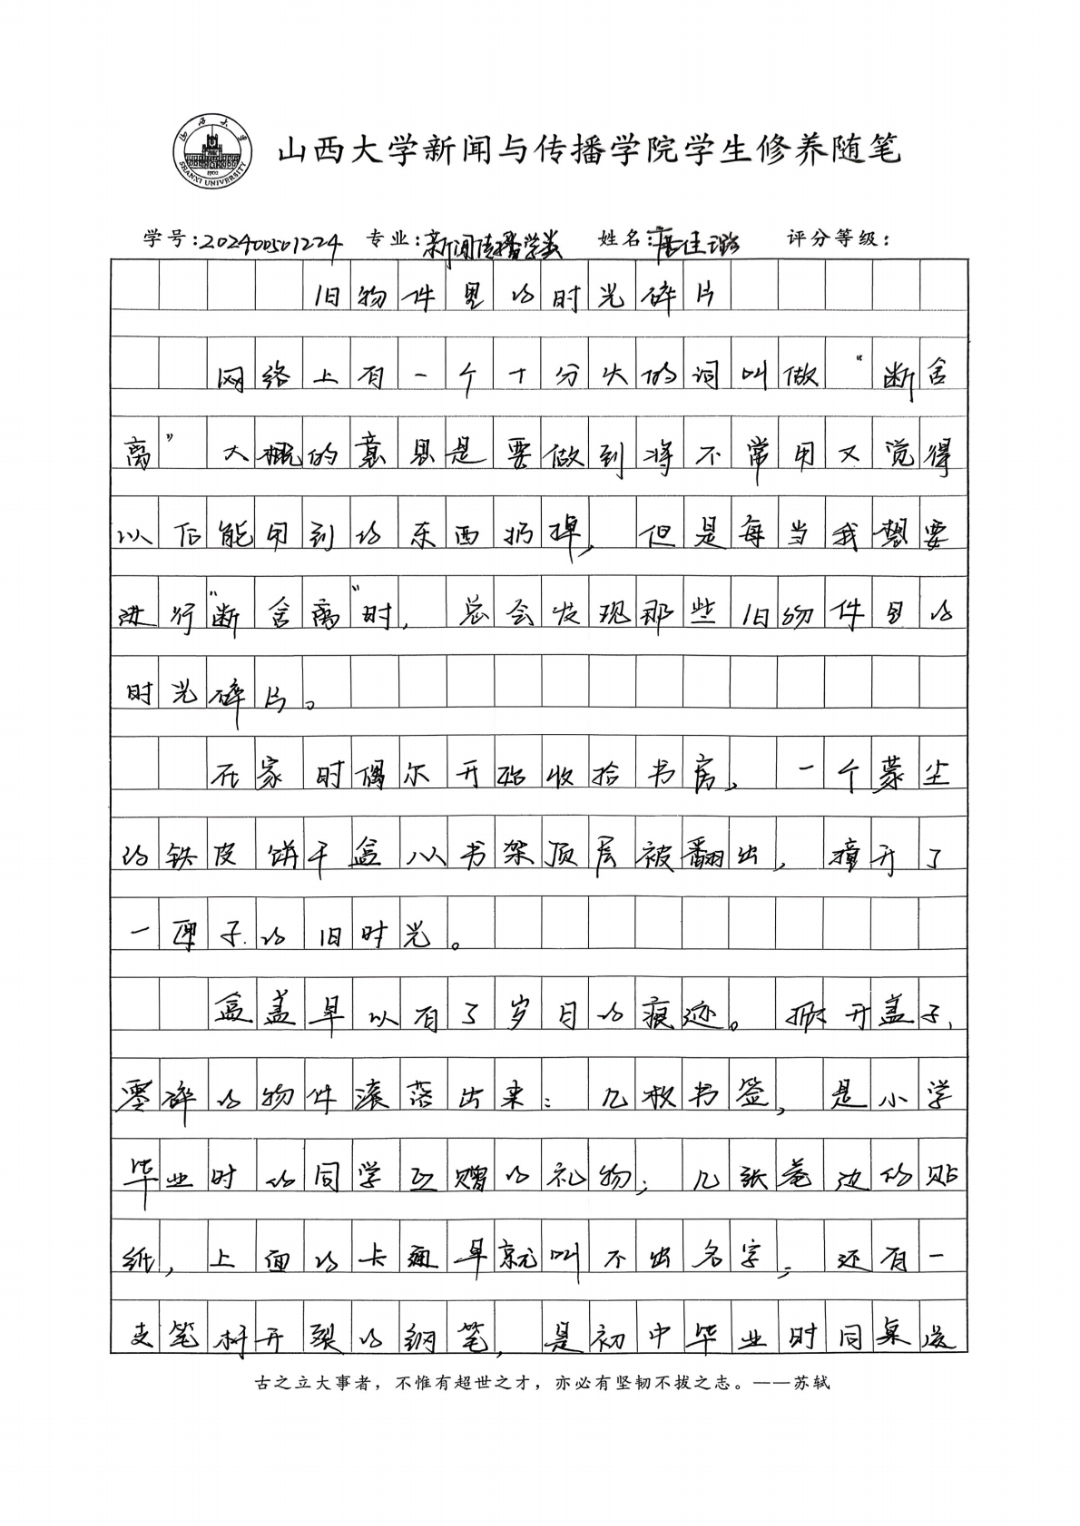 山西大学
SHANXI UNIVERSITY
1902
山西大学新闻与传播学院学生修养随笔
学号:202400501224 专业:新闻传播学类 姓名:唐佳璐 评分等级:
旧物件里的时光碎片
网络上有一个十分火的词叫做“断舍
离”大概的意思是要做到将不常用又觉得
以后能用到的东西扔掉，但是每当我想要
进行“断舍离”时，总会发现那些旧物件里的
时光碎片。
在家时偶尔开始收拾书房，一个蒙尘
的铁皮饼干盒从书架顶层被翻出，撞开了
一匣子的旧时光。
盒盖早以有了岁月的痕迹。掀开盖子，
零碎的物件滚落出来：几枚书签，是小学
毕业时的同学互赠的礼物；几张卷边的贴
纸，上面的卡通早就叫不出名字；还有一
支笔杆开裂的钢笔，是初中毕业时同桌送
古之立大事者，不惟有超世之才，亦必有坚韧不拔之志。——苏轼